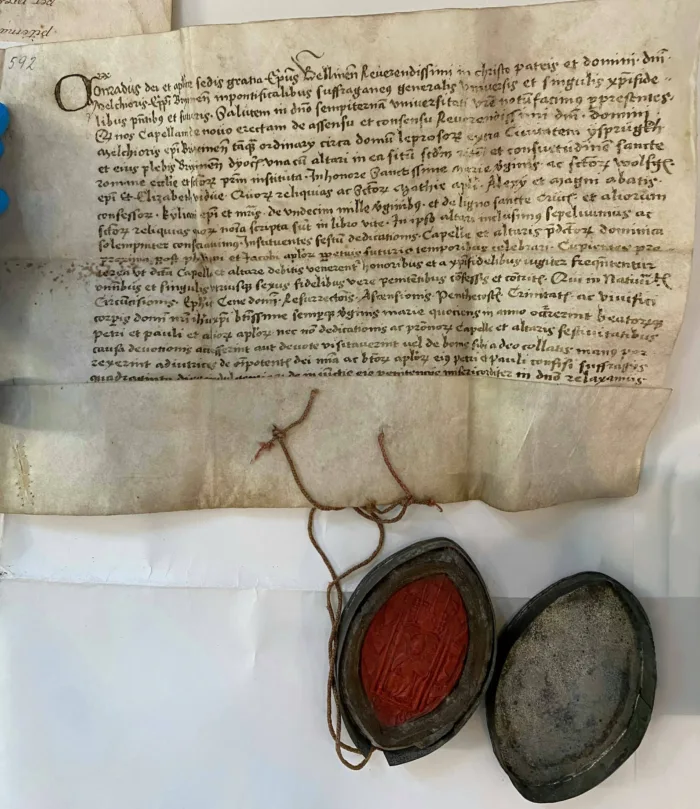 592
Conradus dei et aplice sedis gratia Epus Bellineñ Reverendissimi in christo patris et domini dñi
Melchioris Epi Brixineñ inpontificalibus suffraganeus generalis Universis et singulis xpifide
libus pñtibus et futuris. Salutem in dño sempiternam universitati vre notum facimus p presentes.
Q nos Capellam de novo erectam de assensu et consensu Reverendissimi dñi domini
Melchioris epi Brixineñ tanq ordinarij circa domum leprosoꝝ extra Civitatem ysprugkh
et eius plebis dyoc una cum altari in ea situ et consuetudinem sancte
romane ecclie et pꝛm instituta. In honore Sanctissime Marie v̄ginis ac sctoꝝ Wolfg.
epi Et Elizabeth vidue. Quoꝝ reliquias ac Sctoꝝ Mathie apli Alexij et magni abatis.
confessoꝝ. Kyliani epi et mris. de undecim mille v̄ginibꝫ. et de ligno sancte Crucis et aliorum
sctoꝝ reliquias quoꝝ noia scripta sunt in libro vite. In ipso altari inclusimus sepelivimus ac
solempniter consecravimus. Instituentes festum dedicationis Capelle et altaris pdctoꝝ dominica
proxima post phlippi et Jacobi aploꝝ ppetuis futuris temporibus celebrari. Cupientes pro
terea ut dicta Capella et altare debitis venerent honoribus et a xpifidelibus iugiter frequentetur
omnibus et singulis utriusqꝫ sexus fidelibus vere penitentibus confessis et contritis. Qui in Nativitatis
Circucisionis. Ephie Cene domini Resurrectois. Ascensionis. Penthecostes Trinitatis ac vivifici
corpis domi nri ihuxpi btissime semperqꝫ v̄ginis marie quotiens in anno occurrerint beatoꝝqꝫ
petri et pauli et alioꝝ aploꝝ nec nō dedicationis ac pronoꝝ Capelle et altaris festivitatibus
causa devotionis accesserint aut devote visitaverint vel de bonis sibi a deo collatis manus por
rexerint adiutrices de oipotentis dei mia ac btoꝝ aploꝝ eiꝰ petri et pauli confisi suffragijs
quadraginta dies de iniunctis eis penitencijs misericorditer in dño relaxamus.